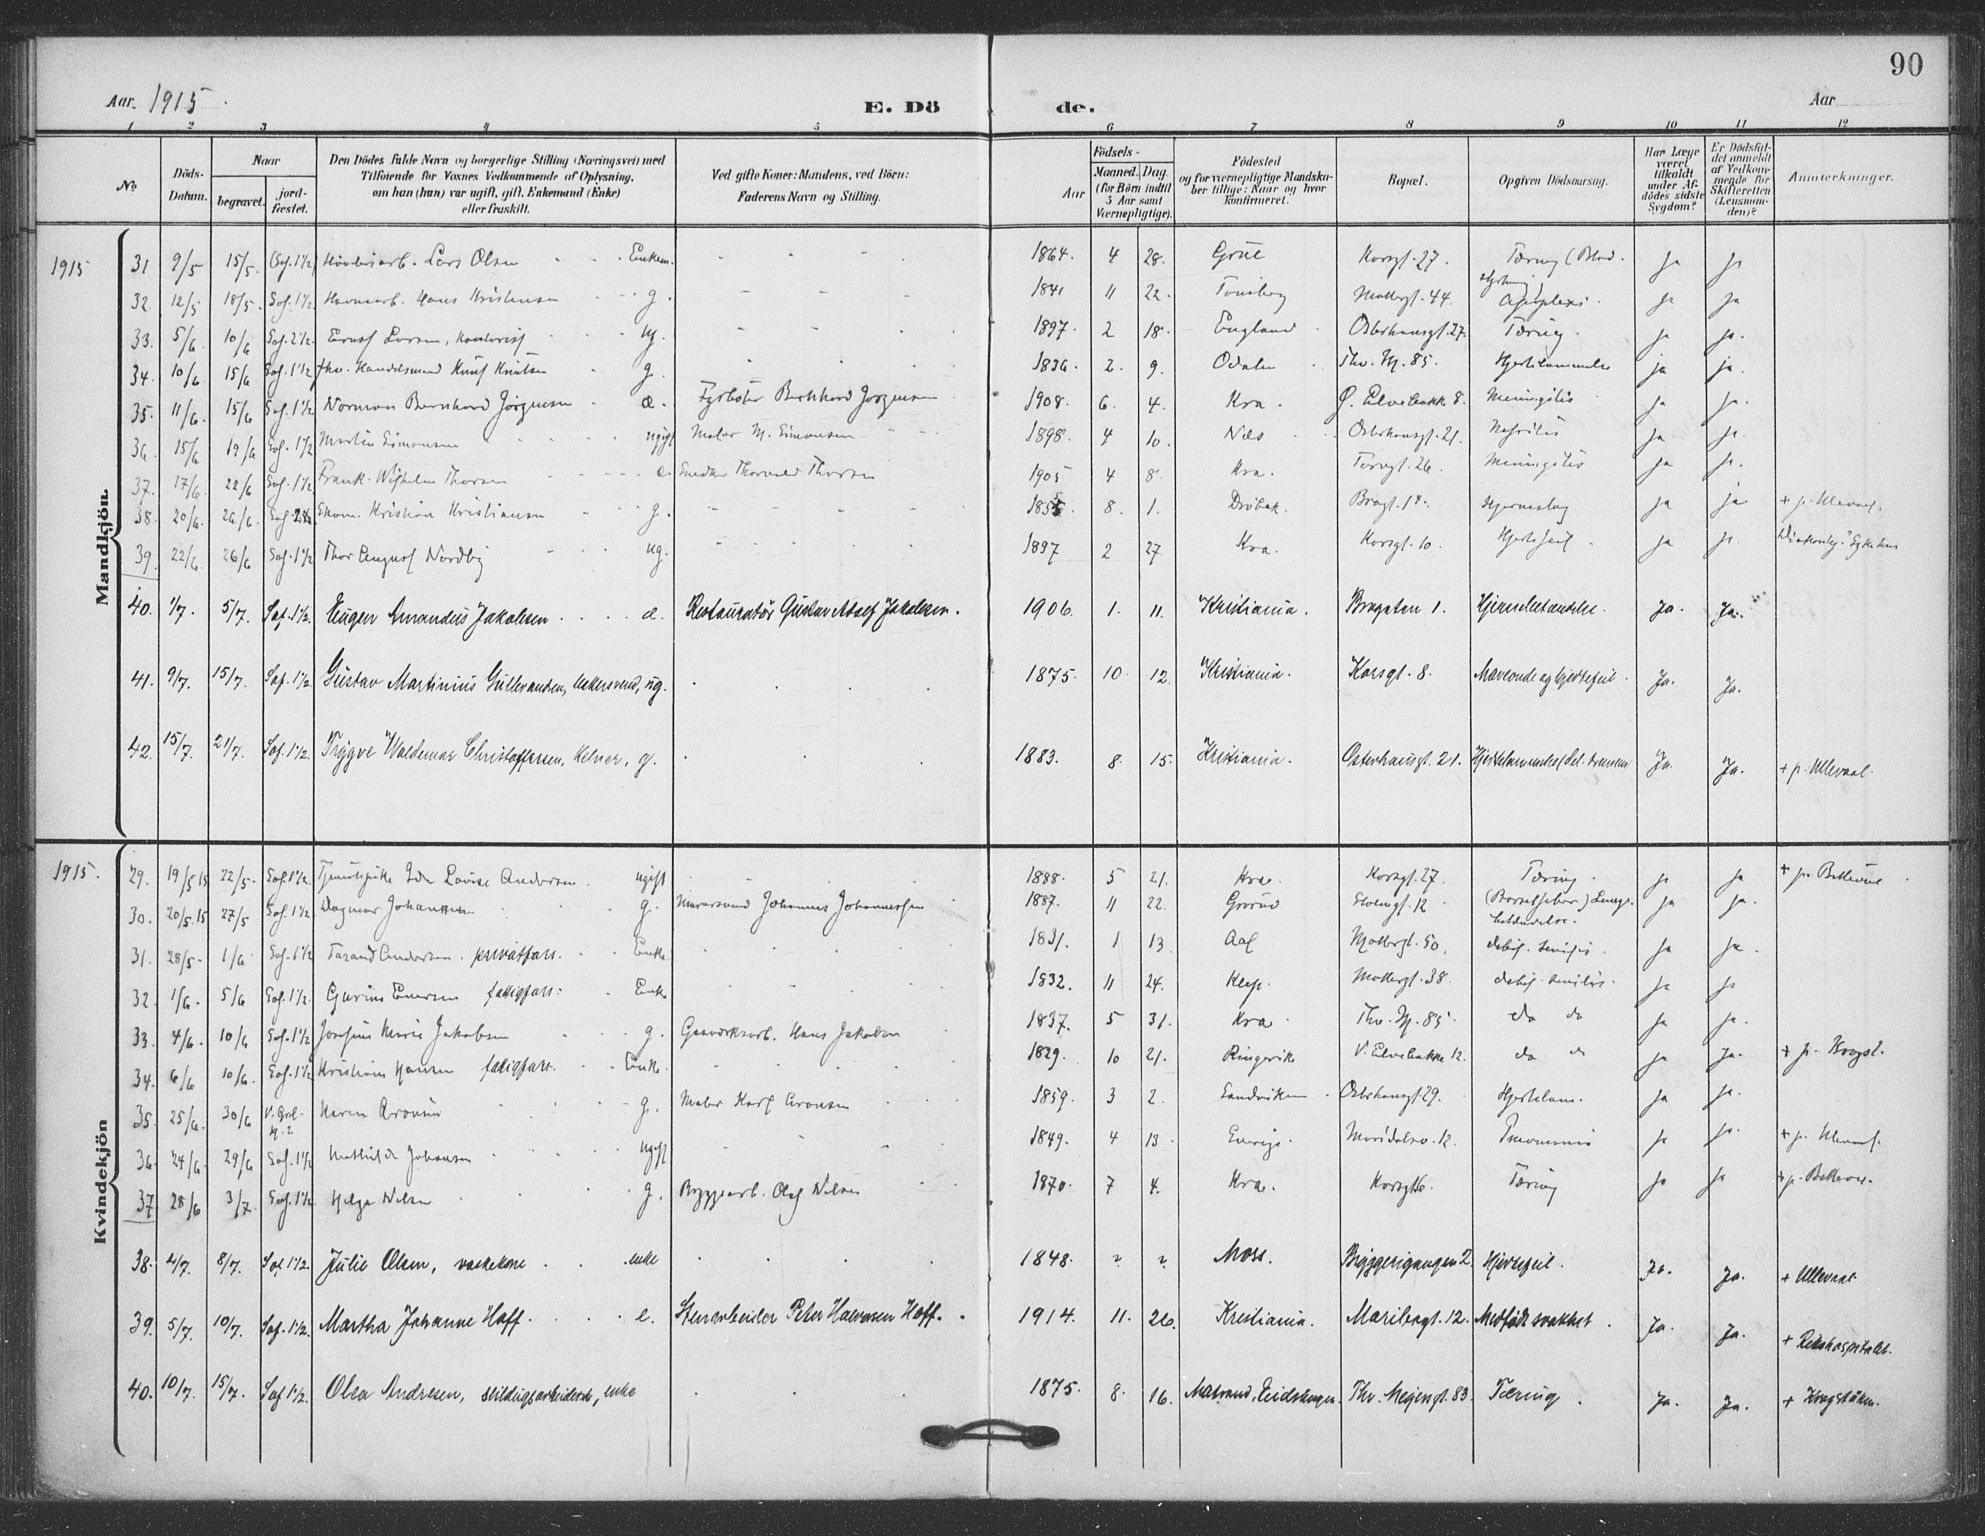 90
Aar. 1915. E. Dö de. Aar
1 2 3 4 5 6 7 8 9 10 11 12
No Döds-Datum. Naar begravet. jordfæstet. Den Dödes fulde Navn og borgerlige Stilling (Næringsvei) med Tilføiende for Voxnes Vedkommende af Oplysning, om han (hun) var ugift, gift, Enkemand (Enke) eller fraskilt. Ved gifte Koner: Mandens, ved Börn: Faderens Navn og Stilling. Aar Födsels- Maaned. Dag (for Börn indtil 5 Aar samt Værnepligtige). Födested og for værnepligtige Mandskaber tillige: Naar og hvor konfirmeret. Bopæl. Opgiven Dödsaarsag. Har Læge været tilkaldt under Afdödes sidste Sygdom? Er Dödsfaldet anmeldt af Vedkommende for Skifteretten (Lensmanden)? Anmærkninger.
Mandkjön.
1915 31 9/5 15/5. Lars Olsen Enkem. 1864. 4 28. Grue Korsgt. 27. Tæring ja ja
32. 12/5 18/5. Hans Kristensen g. 1841 11 22. Tønsberg Møllergt. 44. Apoplexi. ja ja
33. 5/6 10/6 Ernst Larsen, kontorist ug. 1897. 2 18. England Osterhausgt. 27. Tæring. ja ja.
34. 10/6 15/6 fhv. Handelsmand Knut Knutsen g. 1836. 2. 9. Odalen Thv. M. 85. Hjertelammelse ja ja.
35. 11/6 15/6 Norman Bernhard Jørgensen e. Fyrbøter Bernhard Jørgensen 1908. 6. 4. Kra. Ø. Elvebakk 8. Meningitis ja ja.
36. 15/6 19/6 Martin Simonsen ugift Maler M. Simonsen 1898. 4 10. Næs Osterhausgt. 21. Nefritis ja ja.
37. 17/6. 22/6 Frank Wilhelm Thorsen e. Snedker Thorvald Thorsen 1905 4 8. Kra. Torvgt. 26. Meningitis ja ja.
38. 20/6. 26/6. Kristian Kristiansen g. 8. 1. Drøbak. Brogt. 14. Hjerneslag ja ja + p. Ullevaal.
39. 22/6. 26/6 Thor August Nordby ug. 1897 2 27 Kra. Korsgt. 10. Hjertefeil ja ja. Diakonhj. Sykehus
40. 1/7. 5/7. Sof. 1 1/2. Eugen Amandus Jakobsen e. Restauratør Gustav Adolf Jakobsen. 1906. 1. 11. Kristiania. Brogaten 1. Hjernebetændelse. Ja. Ja.
41. 9/7. 15/7. Sof. 1 1/2. Gustav Martinius Gulbrandsen, bakersvend, ug. 1875. 10. 12. Kristiania. Korsgt. 8. Maveonde og hjertefeil. Ja. Ja.
42. 15/7. 21/7. Sof. 1 1/2. Trygve Waldemar Christoffersen, kelner, g. 1883. 8. 15. Kristiania. Osterhausgt. 21. Hjertelammelse (del. tremens Ja. Ja. + p. Ullevaal.
Kvindekjön
1915. 29. 19/5 15 22/5. Sof. 1 1/2. Tjenestepike Ida Lovise Andersen. ugift 1888. 5 21. Kra. Korsgt. 27. Tæring. ja ja + p. Bellevue.
30. 20/5. 15 27/5 Sof. 1 1/2. Dagmar Johannesen g. Murersvend Johannes Johannessen 1887. 11 22. Grorud 12 (Barselfeber) Lungebetændelse. ja ja.
31. 28/5 1/6 Sof. 1 1/2 Tarand Andersen. privatfors. Enke. 1831. 1 13. Aal Møllergt. 50. debil. senilis. ja ja.
32. 1/6. 5/6 Sof. 1 1/2. Gurine Eversen fattigfors. Enke 1832. 11 24. Klep. Møllergt. 38. debil. senilis. ja ja
33. 4/6. 10/6 Sof. 1 1/2 Josefine Marie Jakobsen g. Gasverksarb. Hans Jakobsen 1837. 5 31. Kra Thv. M. 85. do do ja ja.
34. 6/6 10/6. Sof. 1 1/2 Kristiane Hansen fattigfors. Enke. 1829. 10 21. Ringerike V. Elvebakke 12. do do ja ja. + p. Krogst.
35. 25/6. 30/6 V. Grl. Karen Aronsen g. Maler Karl Aronsen 1859. 3 2. Sandviken Osterhausgt. 29. Hjertelam. ja ja.
36. 24/6. 29/6 Sof. 1 1/2 Mathilde Johansen ugift 1849. 4 13. Sverige. Maridalsv. 12. Pneumonia ja ja. + p. Ullevaal.
37 28/6 3/7. Sof. 1 1/2 Helga Nilsen g. Byggearb. Olaf Nilsen 1870. 7 4. Kra. Tæring ja ja + p. Bellevue.
38. 4/7. 8/7. Sof 1 1/2. Julie Olsen, vaskekone enke 1848. ? ? Moss. Bryggerigangen 2. Hjertefeil. Ja. Ja. + Ullevaal
39. 5/7. 10/7. Sof. 1 1/2. Martha Johanne Hoff. e. Stenarbeider Peter Halvorsen Hoff. 1914. 11. 26. Kristiania. Maribogt. 12. Medfødt svakhet. Ja. Ja. + Rikshospitalet.
40. 10/7. 15/7. Sof 1 1/2. Olea Andresen, enke 1875. 8. 16. Matrand, Eidskogen. Thv. Meyersgt. 83. Tæring. Ja. Ja. + Krogstøtten.